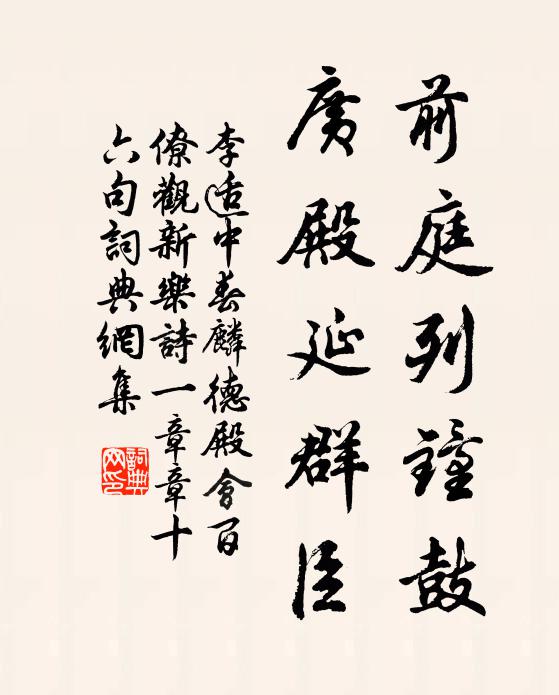 前庭列鐘鼓
廣殿延群臣
李适中春麟德殿會百
僚觀新樂詩一章章十
六句詞典網集
詞典
网印